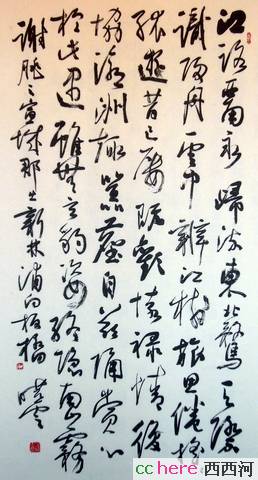 江路西南永歸流東北騖天際
識歸舟雲中辨江樹旅思倦搖
孤遊昔已屢既歡懷祿情復
協滄洲趣囂塵自茲隔賞心
於此遇雖無玄豹姿終隱南山霧
謝朓之宣城郡出新林浦向板橋
cchere西西河